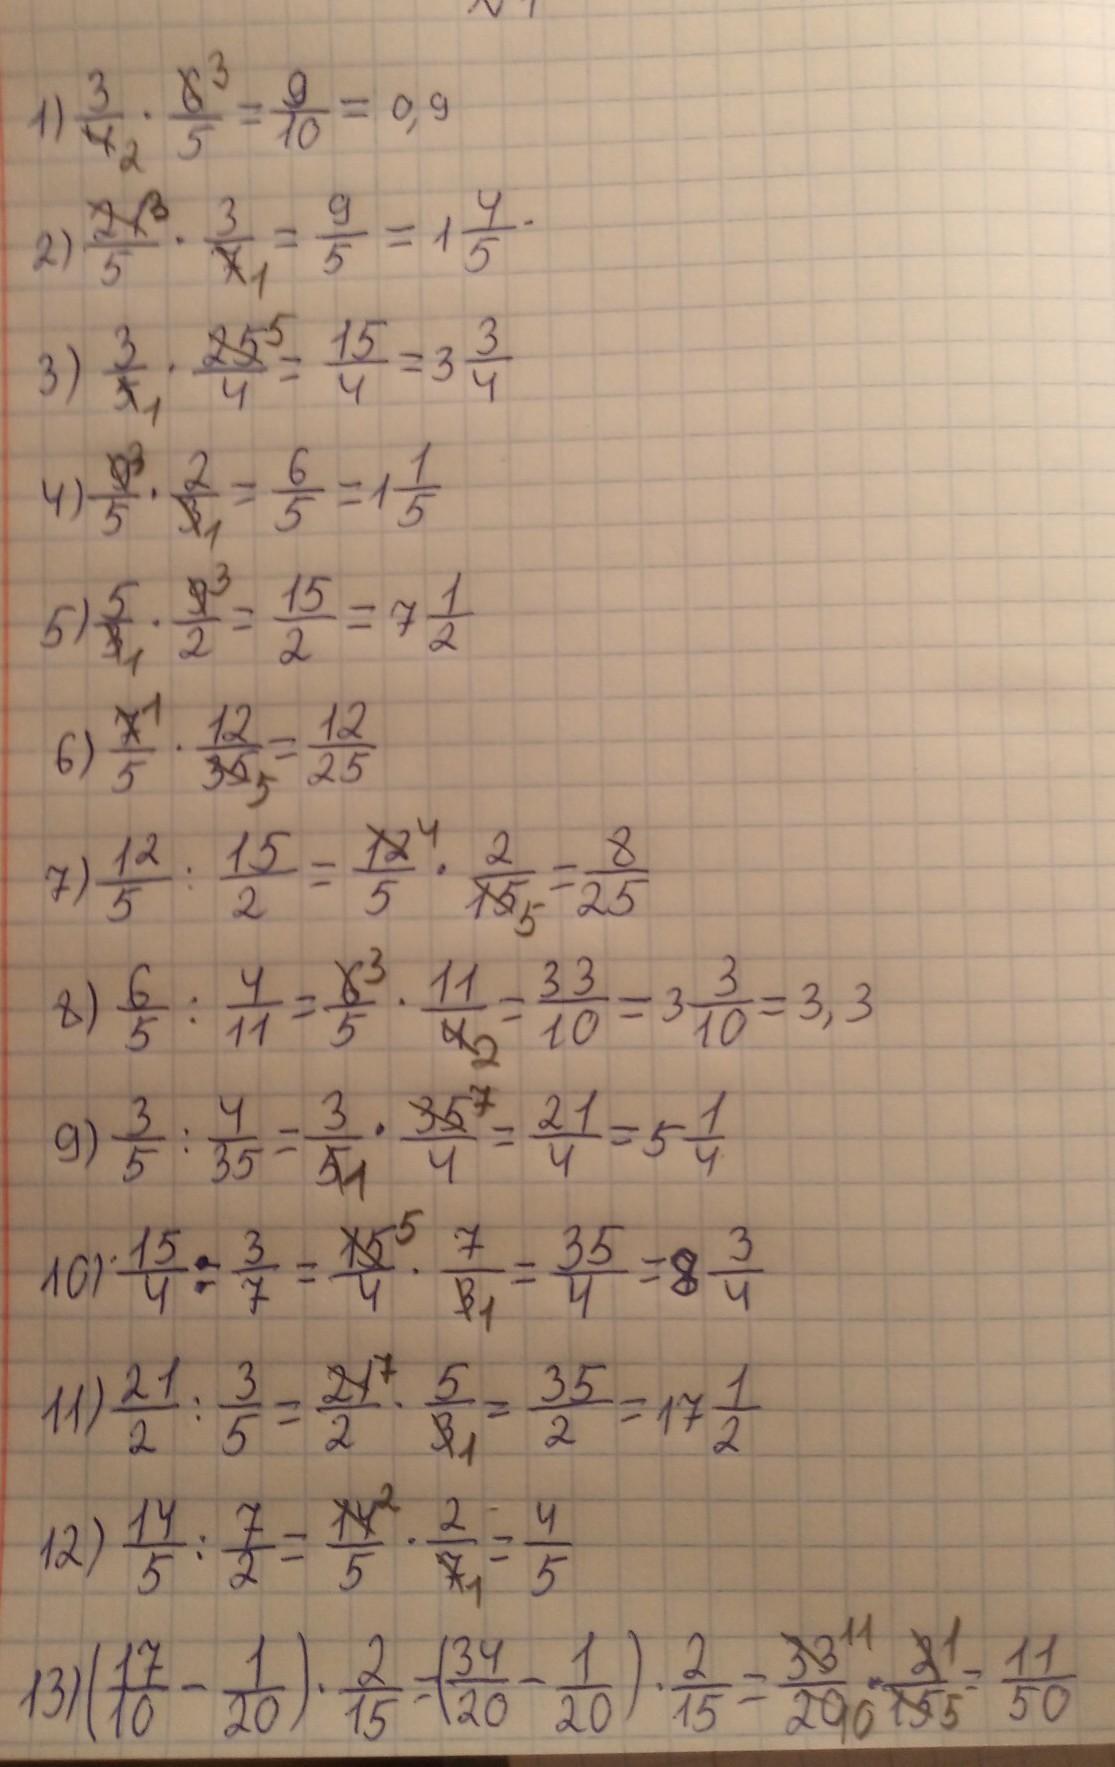 1) 3/4 2 · 6 3/5 = 9/10 = 0,9
2) 21 3/5 · 3/7 1 = 9/5 = 1 4/5
3) 3/5 1 · 25 5/4 = 15/4 = 3 3/4
4) 9 3/5 · 2/3 1 = 6/5 = 1 1/5
5) 5/3 1 · 9 3/2 = 15/2 = 7 1/2
6) 7 1/5 · 12/35 5 = 12/25
7) 12/5 : 15/2 = 12 4/5 · 2/15 5 = 8/25
8) 6/5 : 4/11 = 6 3/5 · 11/4 2 = 33/10 = 3 3/10 = 3,3
9) 3/5 : 4/35 = 3/5 1 · 35 7/4 = 21/4 = 5 1/4
10) 15/4 : 3/7 = 15 5/4 · 7/3 1 = 35/4 = 8 3/4
11) 21/2 : 3/5 = 21 7/2 · 5/3 1 = 35/2 = 17 1/2
12) 14/5 : 7/2 = 14 2/5 · 2/7 1 = 4/5
13) (17/10 - 1/20) · 2/15 = (34/20 - 1/20) · 2/15 = 33 11/20 10 · 2 1/15 5 = 11/50